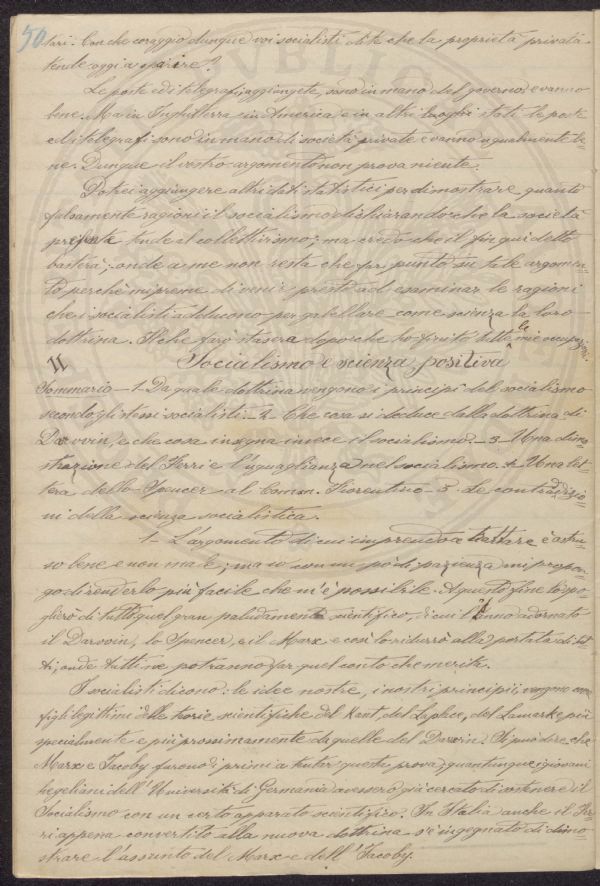 50
tari. Con che coraggio dunque voi socialisti dite che la proprietà privata
tende oggi a sparire?
Le poste ed i telegrafi, aggiungete, sono in mano del governo e vanno
bene. Ma in Inghilterra in America e in altri luoghi stati le poste
ed i telegrafi sono in mano di società private e vanno ugualmente be-
ne. Dunque il vostro argomento non prova niente.
Potrei aggiungere altri dati statistici per dimostrare quanto
falsamente ragioni il socialismo dichiarando che la società
presente tende al collettivismo; ma credo che il fin qui detto
basterà; onde a me non resta che far punto su tale argomen-
to perchè mi preme di venir presto ad esaminar le ragioni
che i socialisti adducono per gabellare come scienza la loro
dottrina. Il che farò stasera dopo che ho finito tutte le mie occupazioni.
II Socialismo è scienza positiva
Sommario - 1- Da quale dottrina vengono i principî del socialismo
secondo gli stessi socialisti - 2- Che cosa si deduce dalla dottrina di
Darwin, e che cosa insegna invece il socialismo - 3- Una dimo-
strazione del Ferri e l'uguaglianza nel socialismo. 4- Una let-
tera dello Spencer al Comm. Fiorentino - 5- Le contraddizio-
ni della scienza socialistica.
1- L'argomento di cui imprendo a trattare è astru-
so bene e non male; ma io con un pò di pazienza mi propon-
go di renderlo più facile che m'è possibile. A questo fine lo spo-
glierò di tutto quel gran paludamento scientifico, di cui l'hanno adornato
il Darwin, lo Spencer, e il Marx e così lo ridurrò alla portata di tut-
ti, onde tutti ne potranno far quel conto che merita.
I socialisti dicono: le idee nostre, i nostri principii, vengono come
figli legittimi delle teorie scientifiche del Kant, del Laplace, del Lamark e più
specialmente e più prossimamente da quelle del Darwin. Si può dire che
Marx e Jacoby furono di primi a tentar questa prova; quantunque i giovani
hegeliani dell'Università di Germania avessero già cercato di sostenere il
Socialismo con un certo apparato scientifico. In Italia anche il Fer-
ri appena convertito alla nuova dottrina s'è ingegnato di dimo-
strare l'assunto del Marx e dell'Jacoby.